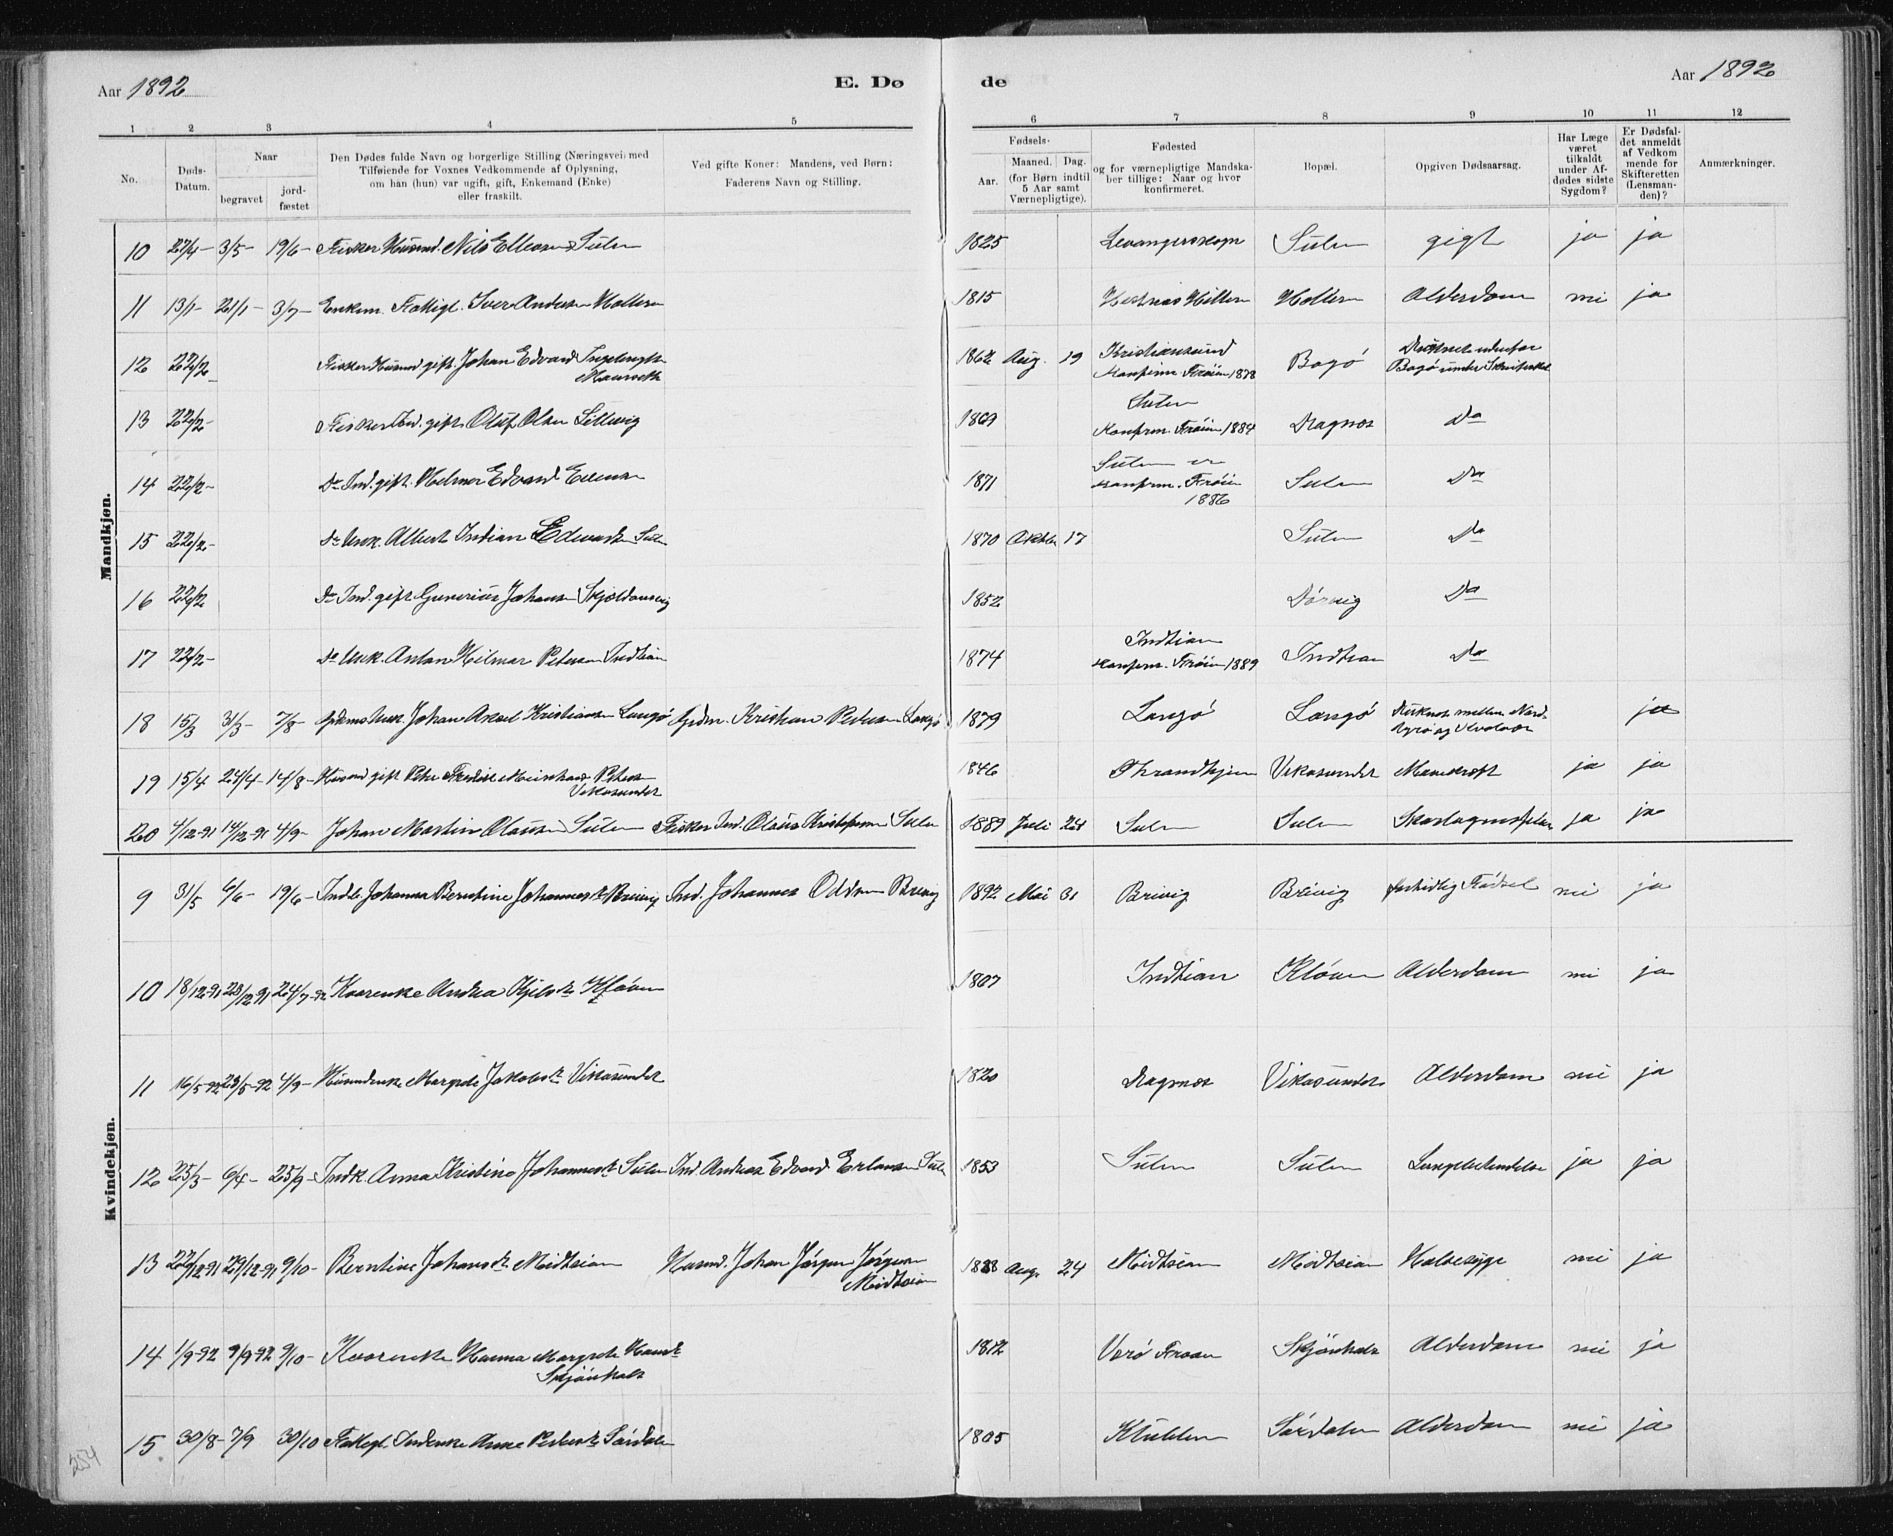 Aar 1892
E. Dø
de
Aar 1892
1 2 3 4 5 6 7 8 9 10 11 12
No.
Døds-Datum.
Naar
begravet
jord-fæstet
Den Dødes fulde Navn og borgerlige Stilling (Næringsvei) med
Tilføiende for Voxnes Vedkommende af Oplysning,
om han (hun) var ugift, gift, Enkemand (Enke)
eller fraskilt.
Ved gifte Koner: Mandens, ved Børn:
Faderens Navn og Stilling.
Fødsels-
Aar.
Maaned. Dag.
(for Børn indtil
5 Aar samt
Værnepligtige).
Fødested
og for værnepligtige Mandska-
ber tillige: Naar og hvor
konfirmeret.
Bopæl.
Opgiven Dødsaarsag.
Har Læge
været
tilkaldt
under Af-
dødes sidste
Sygdom?
Er Dødsfal-
det anmeldt
af Vedkom
mende for
Skifteretten
(Lensman-
den)?
Anmærkninger.
Mandkjøn.
10 27/4- 3/5- 19/6- Fisker Husmd. Nils Ellevsen Sulen 1825 Levangerssogn Sulen gigt ja ja
11 13/1- 21/1- 3/7- Enkem. Fattigl. Iver Andersen Holten 1815 Hestnæs Hitteren Holten Alderdom nei ja
12 22/2- Fisker Husmd gift. Johan Edvard Ingebrigts.
1862 Aug. 19 Kristiansund
Konfirm. Frøien 1878 Bogø Druknet udenfor
Bogø under
13 22/2- Fisker Ind. gift Oluf Olsen 1869 Sulen
Konfirm. Frøien 1884 Ragnos Do
14 22/2- Do Ind. gift. Helmer Edvard 1871 Sulen
Konfirm. Frøien
1886 Sulen Do
15 22/2- Do Unk. Albert Indian Edvards. Sulen 1870 Oktbr 17 Sulen Do
16 22/2 Do Ind. gift Gunerius Johansen 1852 Dørvig Do
17 22/2- Do Unk. Anton Hilmar Petersen Indtian 1874 Indtian
Konfirm. Frøien 1889 Indtian Do
18 15/3 31/3- 7/8- Unk. Johan Axel Kristiansen Langø Grdm. Kristian Petersen Langø 1879 Langø Langø Druknet mellem Nord-
ja
19 15/4 24/4- 14/8- Husmd gift Peter Petersen
Vikasundet 1846 Thrandhjem Vikasundet Mavekræft ja ja
20 4/12-91 14/12-91 4/9- Johan Martin Olausen Sulen Fisker Ind. Olaus Kristofersen Sulen 1889 Juli 24 Sulen Sulen ja ja
Kvindekjøn.
9 31/5 6/6- 19/6- Johanna Berntine Johannesdr. Breivig Ind. Johannes Oddsen Breivig 1892 Mai 31 Breivig Breivig fortidlig Fødsel nei ja
10 18/12-91 23/12-91 24/7-92 Kaarenke Andrea Kjelsdr. Kløven 1807 Indtian Kløven Alderdom nei ja
11 16/5-92 23/5-92 4/9- Husmdenke Margrete Jakobsdr. Vikasundet 1820 Ragnos Vikasundet Alderdom nei ja
12 25/3- 6/4- 25/9- Indk. Anna Kristine Johannesdr. Sulen Ind. Andreas Edvard Erlansen Sulen 1853 Sulen Sulen Lungebetændelse ja ja
13 22/12-91 29/12-91 9/10- Berntine Johansdr. Midtsian Husmd. Johan Jørgen Jørgensen
Midtsian 1888 Aug. 24 Midtsian Midtsian Halsesyge nei ja
14 1/9-92 9/9-92 9/10- Kaarenke Hanna Margrete Hansdr.
Skjønhals 1812 Værø Froan Skjønhals Alderdom nei ja
15 30/8- 7/9 30/10 Fattigl. Indenke Anne Pedersdr. Sørdalen 1805 Klubben Sørdalen Alderdom nei ja
254